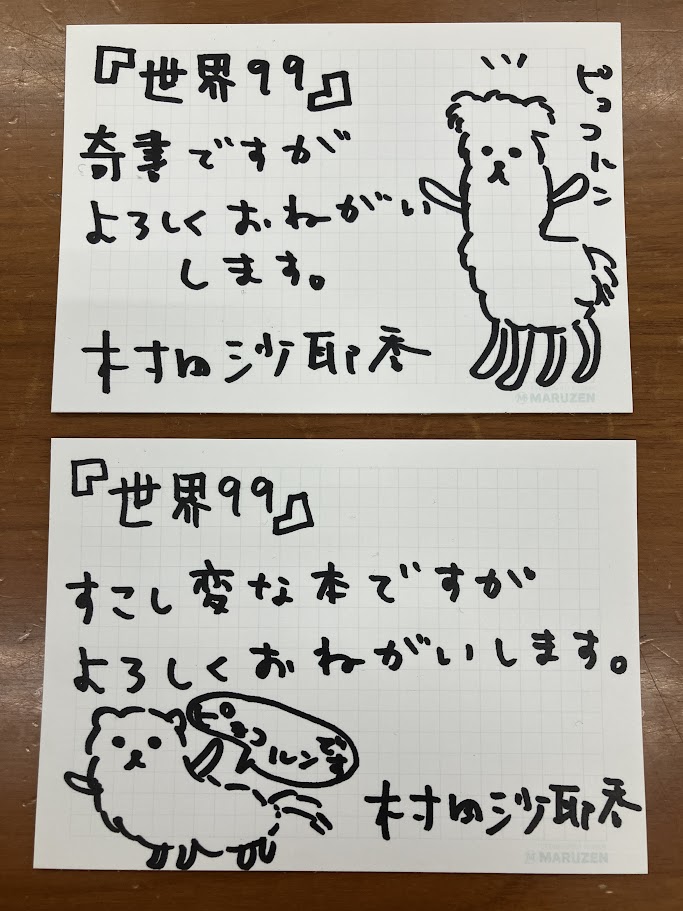 『世界99』
奇書ですが
よろしくおねがい
します。
村田沙耶香
ピョコルン
MARUZEN
『世界99』
すこし変な本ですが
よろしくおねがいします。
ピョコルンです
村田沙耶香
MARUZEN